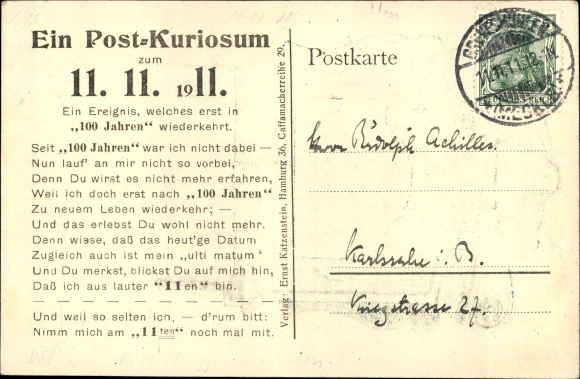 Ein Post-Kuriosum
zum
11. 11. 1911.
Ein Ereignis, welches erst in
„100 Jahren“ wiederkehrt.
Seit „100 Jahren“ war ich nicht dabei —
Nun lauf' an mir nicht so vorbei,
Denn Du wirst es nicht mehr erfahren,
Weil ich doch erst nach „100 Jahren“
Zu neuem Leben wiederkehr; —
Und das erlebst Du wohl nicht mehr.
Denn wisse, daß das heut'ge Datum
Zugleich auch ist mein „ulti matum‘
Und Du merkst, blickst Du auf mich hin,
Daß ich aus lauter “11en“ bin.
Und weil so selten ich, — d'rum bitt:
Nimm mich am „11ten“ noch mal mit.
Verlag: Ernst Katzenstein, Hamburg 36, Caffamacherreihe 29.
Postkarte
Herrn Rudolph Achilles.
Karlsruhe i. B.
Kriegstrasse 27.